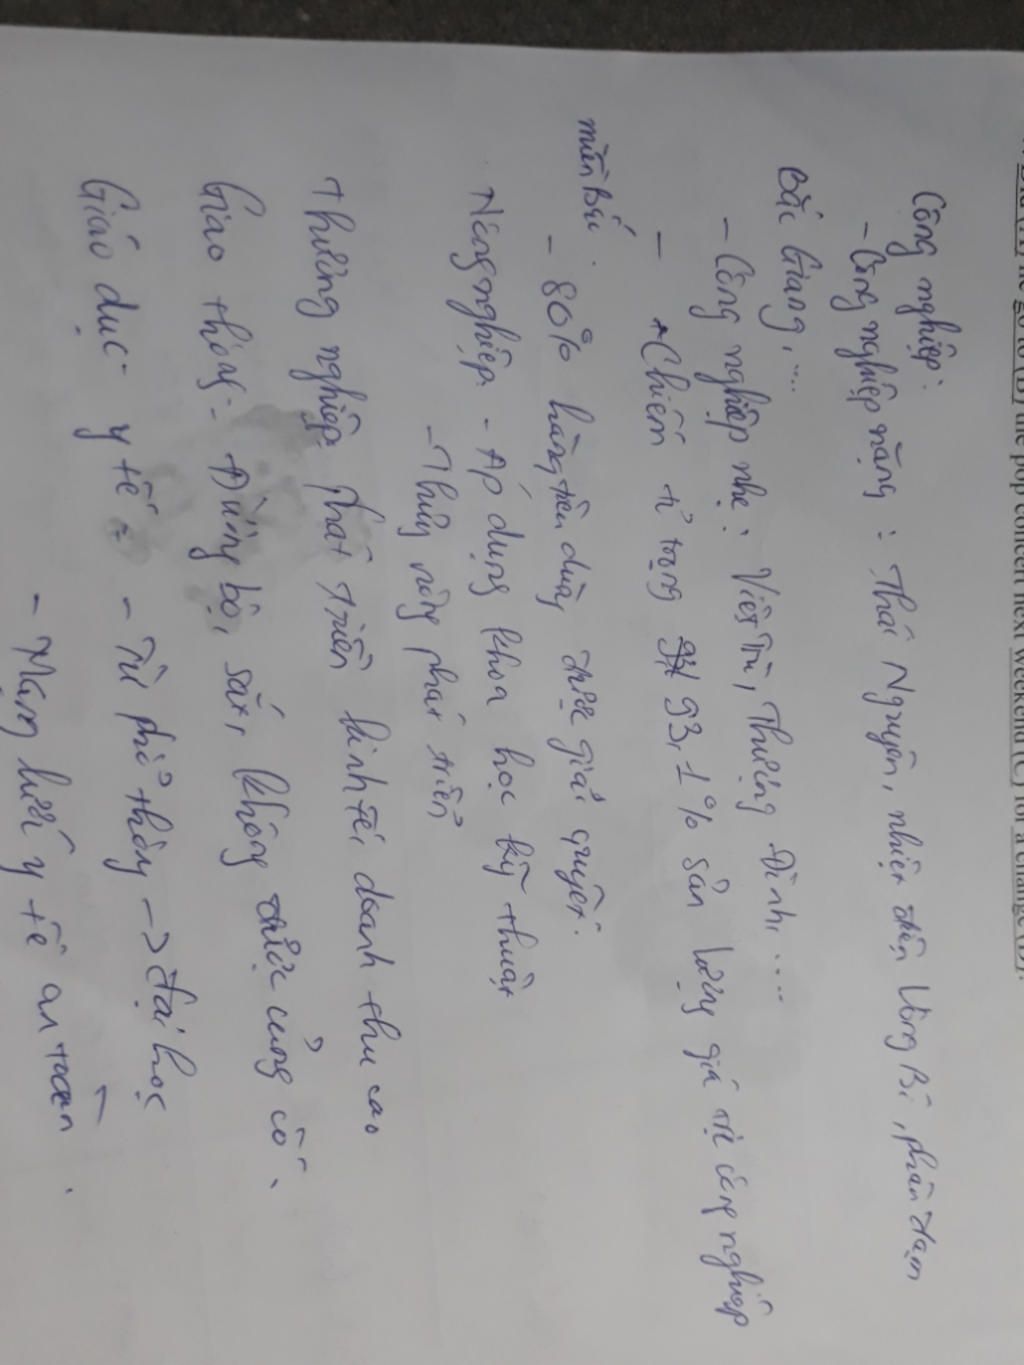 the pop concert next weekend (C) for a change (D).
Công nghiệp:
- Công nghiệp nặng: Thái Nguyên, nhiệt điện Uông Bí, phân đạm
Bắc Giang,...
- Công nghiệp nhẹ: Việt Trì, Thượng Đình,....
- + Chiếm tỉ trọng 93,1% sản lượng giá trị công nghiệp
miền Bắc.
- 80% hàng tiêu dùng được giải quyết.
Nông nghiệp - Áp dụng khoa học kỹ thuật
- Thủy nông phát triển
Thương nghiệp: phát triển kinh tế, doanh thu cao
Giao thông: Đường bộ, sắt, không được củng cố.
Giáo dục - y tế: - Từ phổ thông -> đại học
- Mạng lưới y tế an toàn.